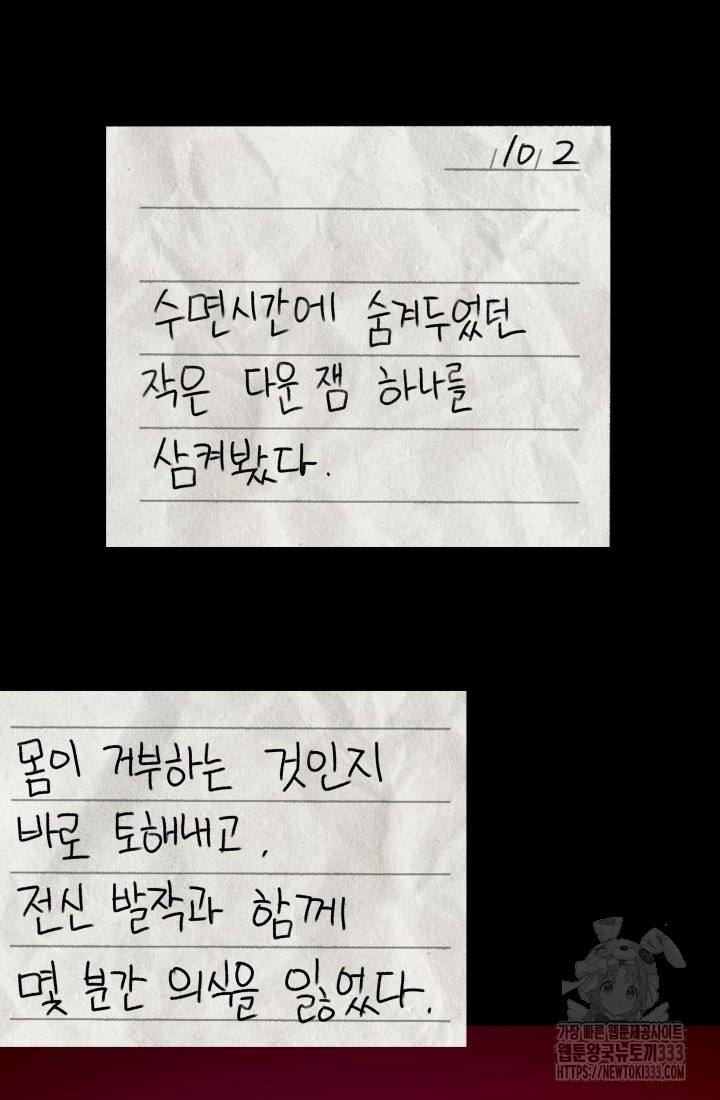 10 2
수면시간에 숨겨두었던
작은 다운 잼 하나를
삼켜봤다.
몸이 거부하는 것인지
바로 토해내고,
전신 발작과 함께
몇 분간 의식을 잃었다.
가장 빠른 웹툰제공사이트
웹툰왕국뉴토끼333
HTTPS://NEWTOKI333.COM